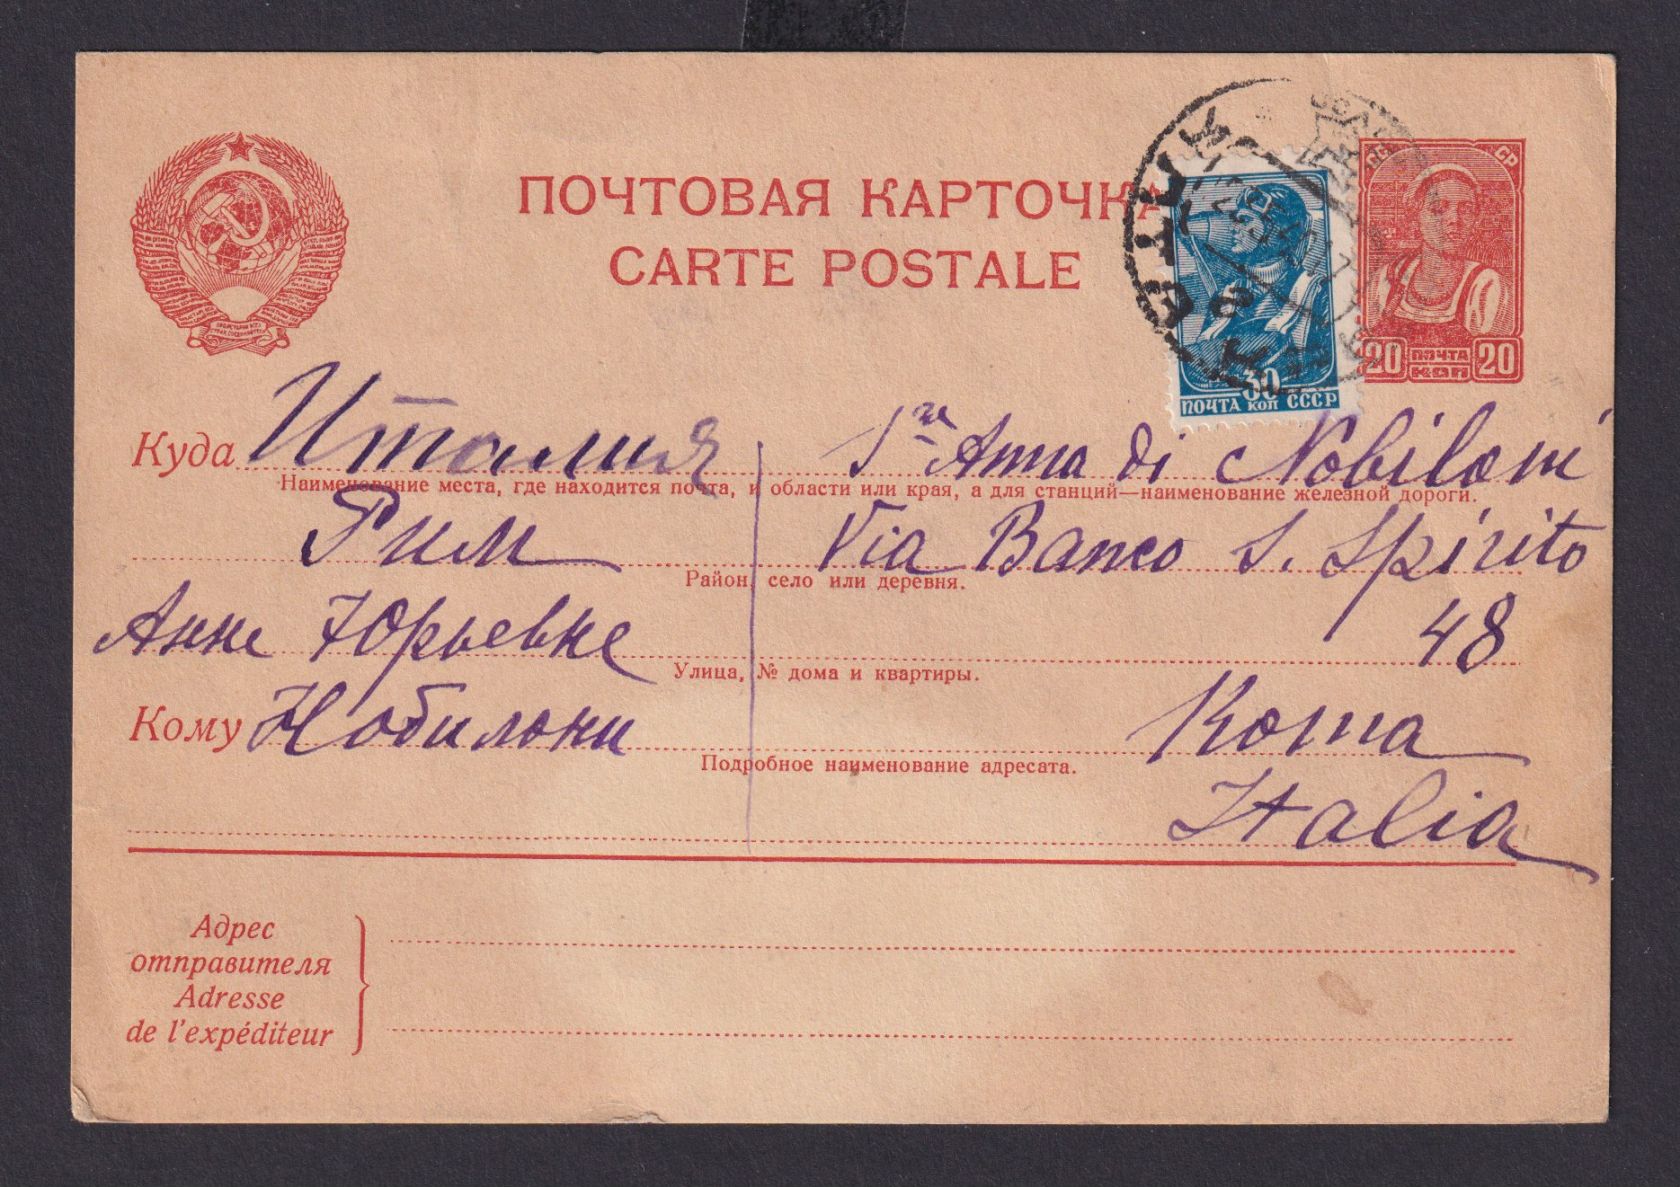 ПОЧТОВАЯ КАРТОЧКА
CARTE POSTALE
20 ПОЧТА КОП 20
30
ПОЧТА КОП СССР
Куда Италия
Sra Anna di Nobiloni
Наименование места, где находится почта, и области или края, а для станций—наименование железной дороги.
Рим
Via Banco S. Spirito
Район, село или деревня.
Анне Юрьевне
48
Улица, № дома и квартиры.
Кому Нобилони
Roma
Подробное наименование адресата.
Italia
Адрес
отправителя
Adresse
de l'expéditeur